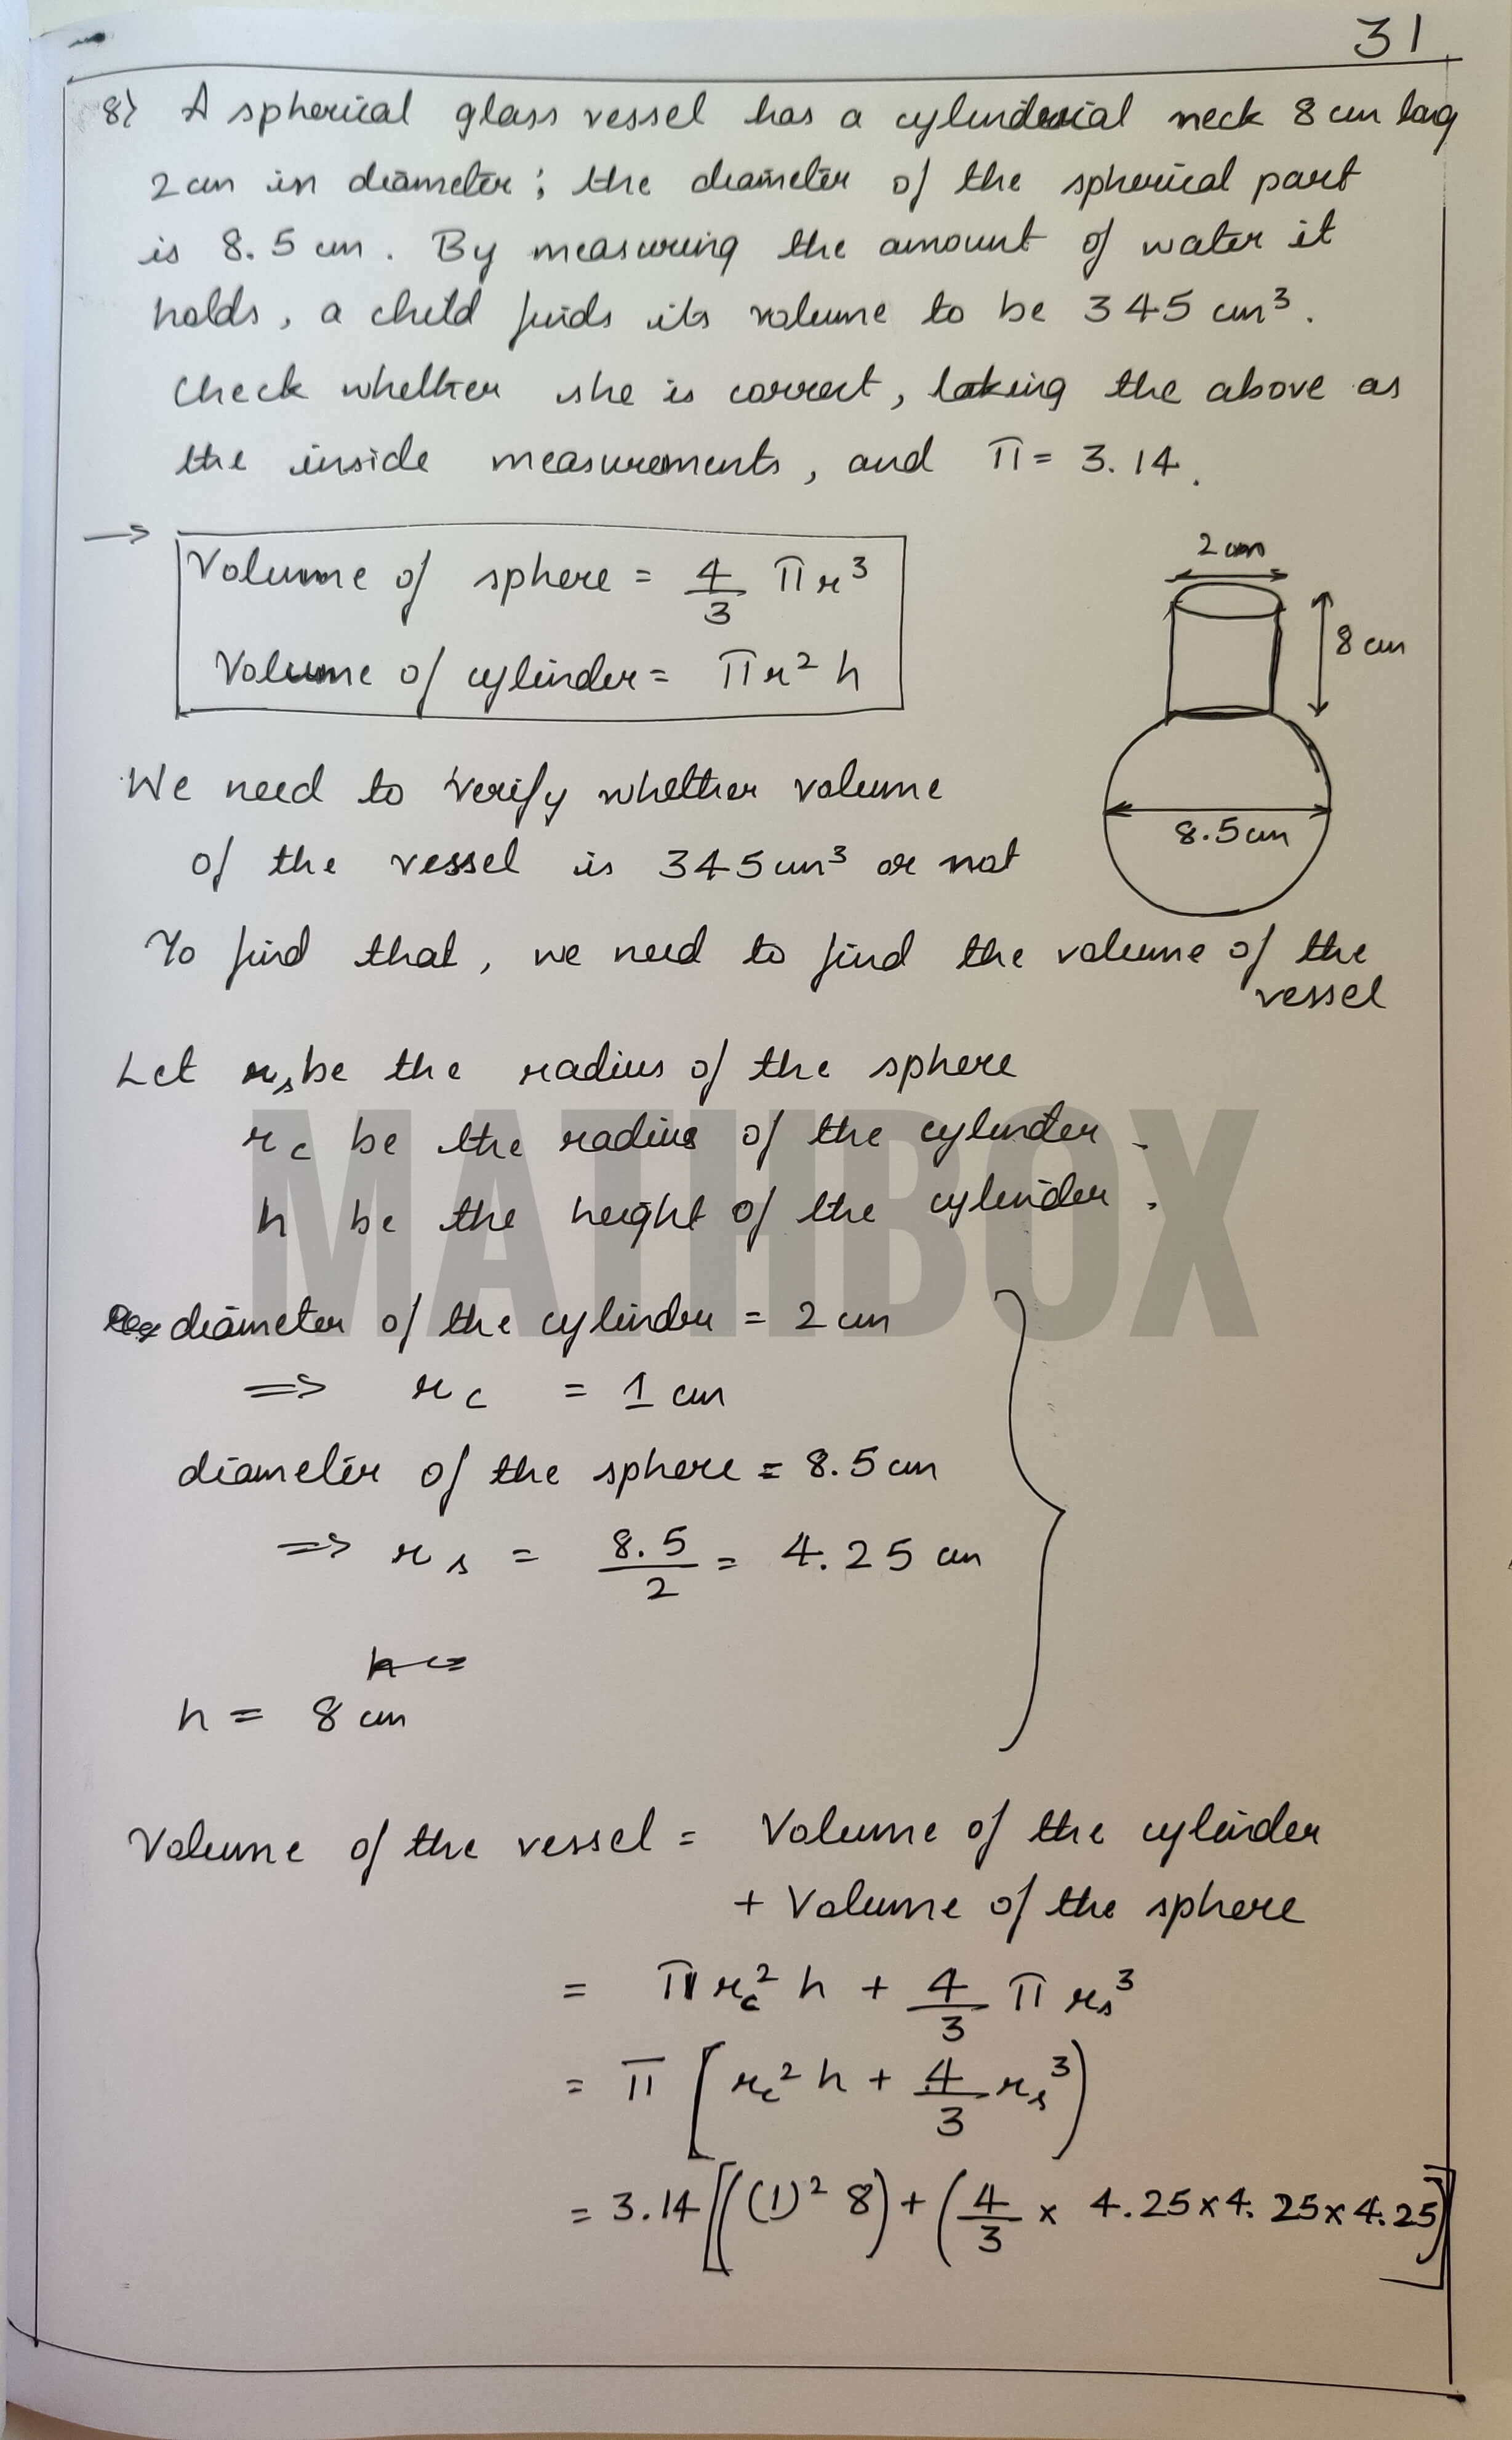 31
8) A spherical glass vessel has a cylinderical neck 8 cm long
2 cm in diameter; the diameter of the spherical part
is 8.5 cm. By measuring the amount of water it
holds, a child finds its volume to be 345 cm³.
Check whether she is correct, taking the above as
the inside measurements, and π = 3.14.
→ Volume of sphere = 4/3 πr³
Volume of cylinder = πr²h
2 cm
8 cm
8.5 cm
We need to verify whether volume
of the vessel is 345 cm³ or not
To find that, we need to find the volume of the
vessel
Let r_s be the radius of the sphere
r_c be the radius of the cylinder.
h be the height of the cylinder.
MATHBOX
diameter of the cylinder = 2 cm
⇒ r_c = 1 cm
diameter of the sphere = 8.5 cm
⇒ r_s = 8.5/2 = 4.25 cm
h =
h = 8 cm
Volume of the vessel = Volume of the cylinder
+ Volume of the sphere
= π r_c² h + 4/3 π r_s³
= π [r_c² h + 4/3 r_s³)
= 3.14 [((1)² 8) + (4/3 × 4.25 × 4.25 × 4.25)]